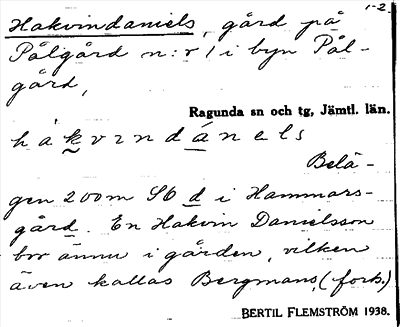 1-2.
Hakvindaniels, gård på
Pålgård n:r 1 i byn Pål-
gård,
Ragunda sn och tg, Jämtl. län.
håkvɪndánels
Belä-
gen 200m SO d i Hammars-
gård. En Hakvin Danielsson
bor ännu i gården, vilken
även kallas Bergmans, (forts.)
BERTIL FLEMSTRÖM 1938.